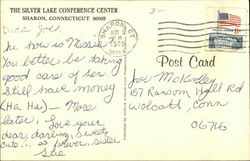 THE SILVER LAKE CONFERENCE CENTER
SHARON, CONNECTICUT 06069
Dear Joe,
So how is Missie?
You better be taking
good care of her. I
still have money
(Ha Ha) - More
later, Love your
dear, darling, sweet,
cute... sister
Sue
SHARON, CT
1975
Post Card
Joe McKinley
157 Ransom Hall Rd
Wolcott, Conn
06716